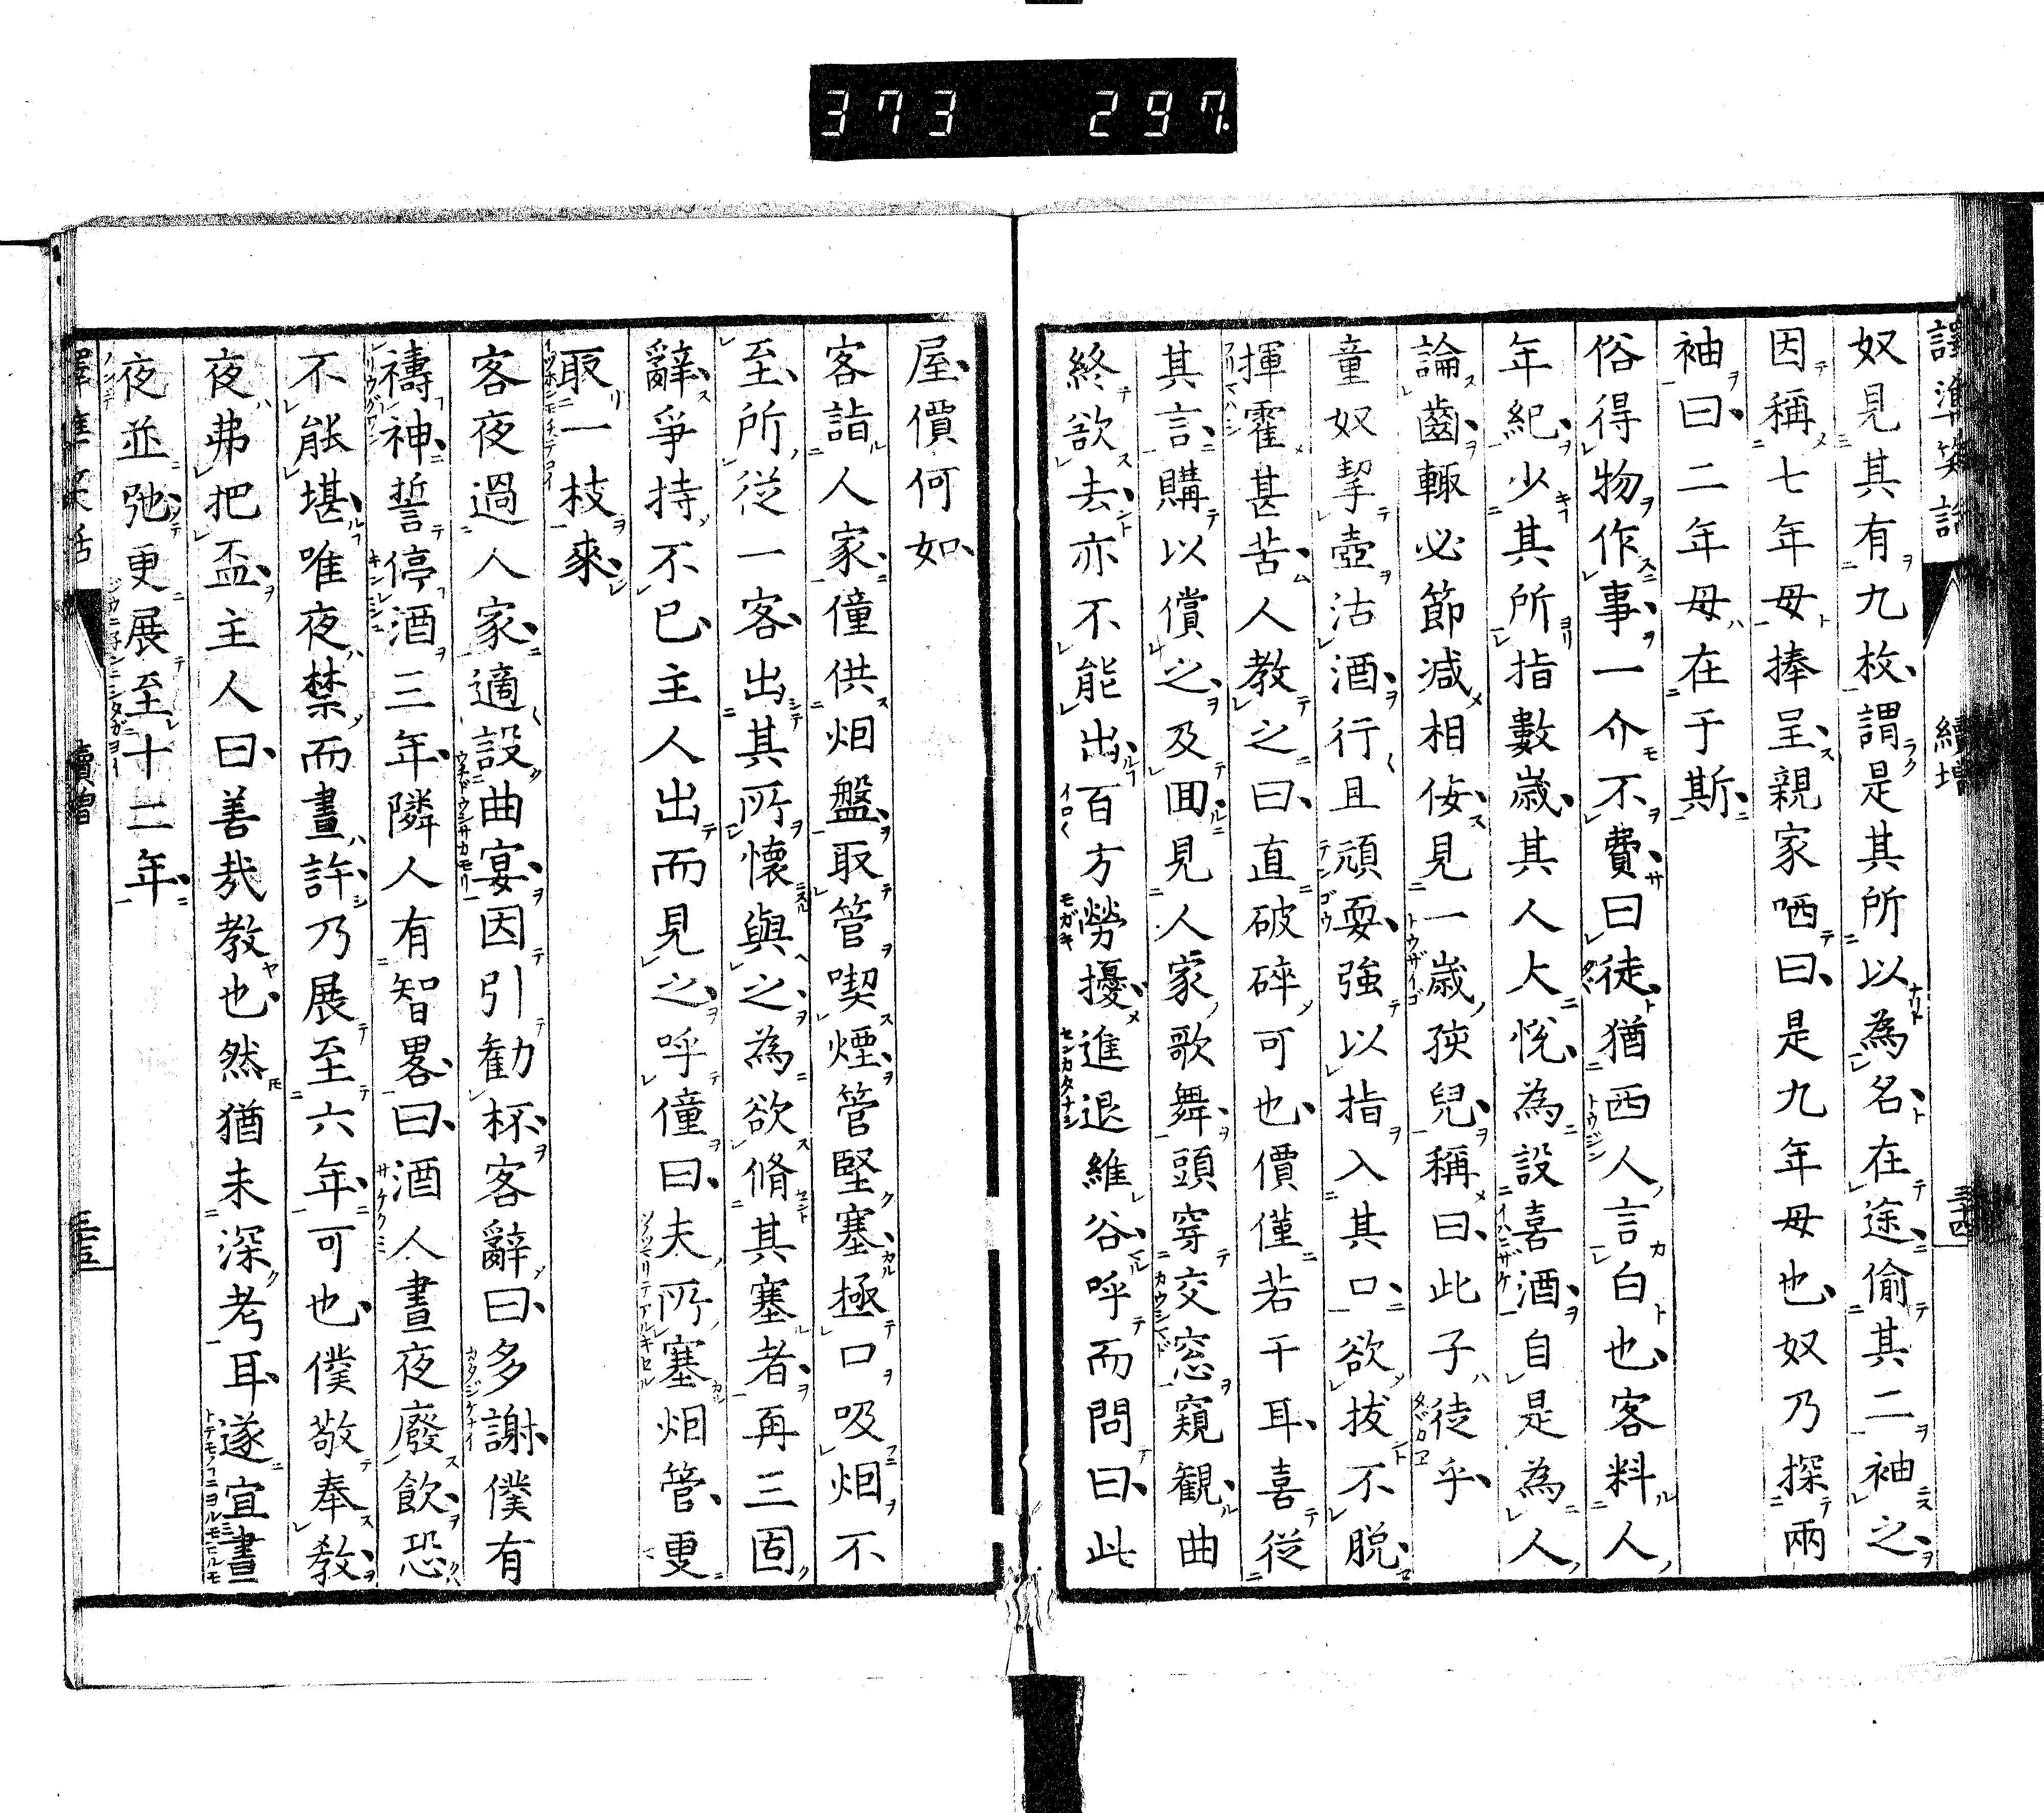 373 297
譯準笑話 續增 三十四
奴見其有九枚謂是其所以為名在途偷其二袖之
因稱七年母捧呈親家哂曰是九年母也奴乃探兩
袖曰二年母在于斯
俗得物作事一介不費曰徒猶西人言白也客料人
年紀少其所指數歲其人大悅為設喜酒自是為人
論齒輙必節減相侫見一歲孩兒稱曰此子徒乎
童奴挈壺沽酒行且頑耍強以指入其口欲拔不脫
揮霍甚苦人教之曰直破碎可也價僅若干耳喜從
其言購以償之及囬見人家歌舞頭穿交窓窺觀曲
終欲去亦不能出百方勞擾進退維谷呼而問曰此
屋價何如
客詣人家僮供烟盤取管喫煙管堅塞極口吸烟不
至所從一客出其所懷與之為欲脩其塞者再三固
辭爭持不已主人出而見之呼僮曰夫所塞烟管更
取一枝來
客夜過人家適設曲宴因引勸杯客辭曰多謝僕有
禱神誓停酒三年隣人有智畧曰酒人晝夜廢飲恐
不能堪唯夜禁而晝許乃展至六年可也僕敬奉教
夜弗把盃主人曰善哉教也然猶未深考耳遂宜晝
夜並弛更展至十二年
續增 三十五